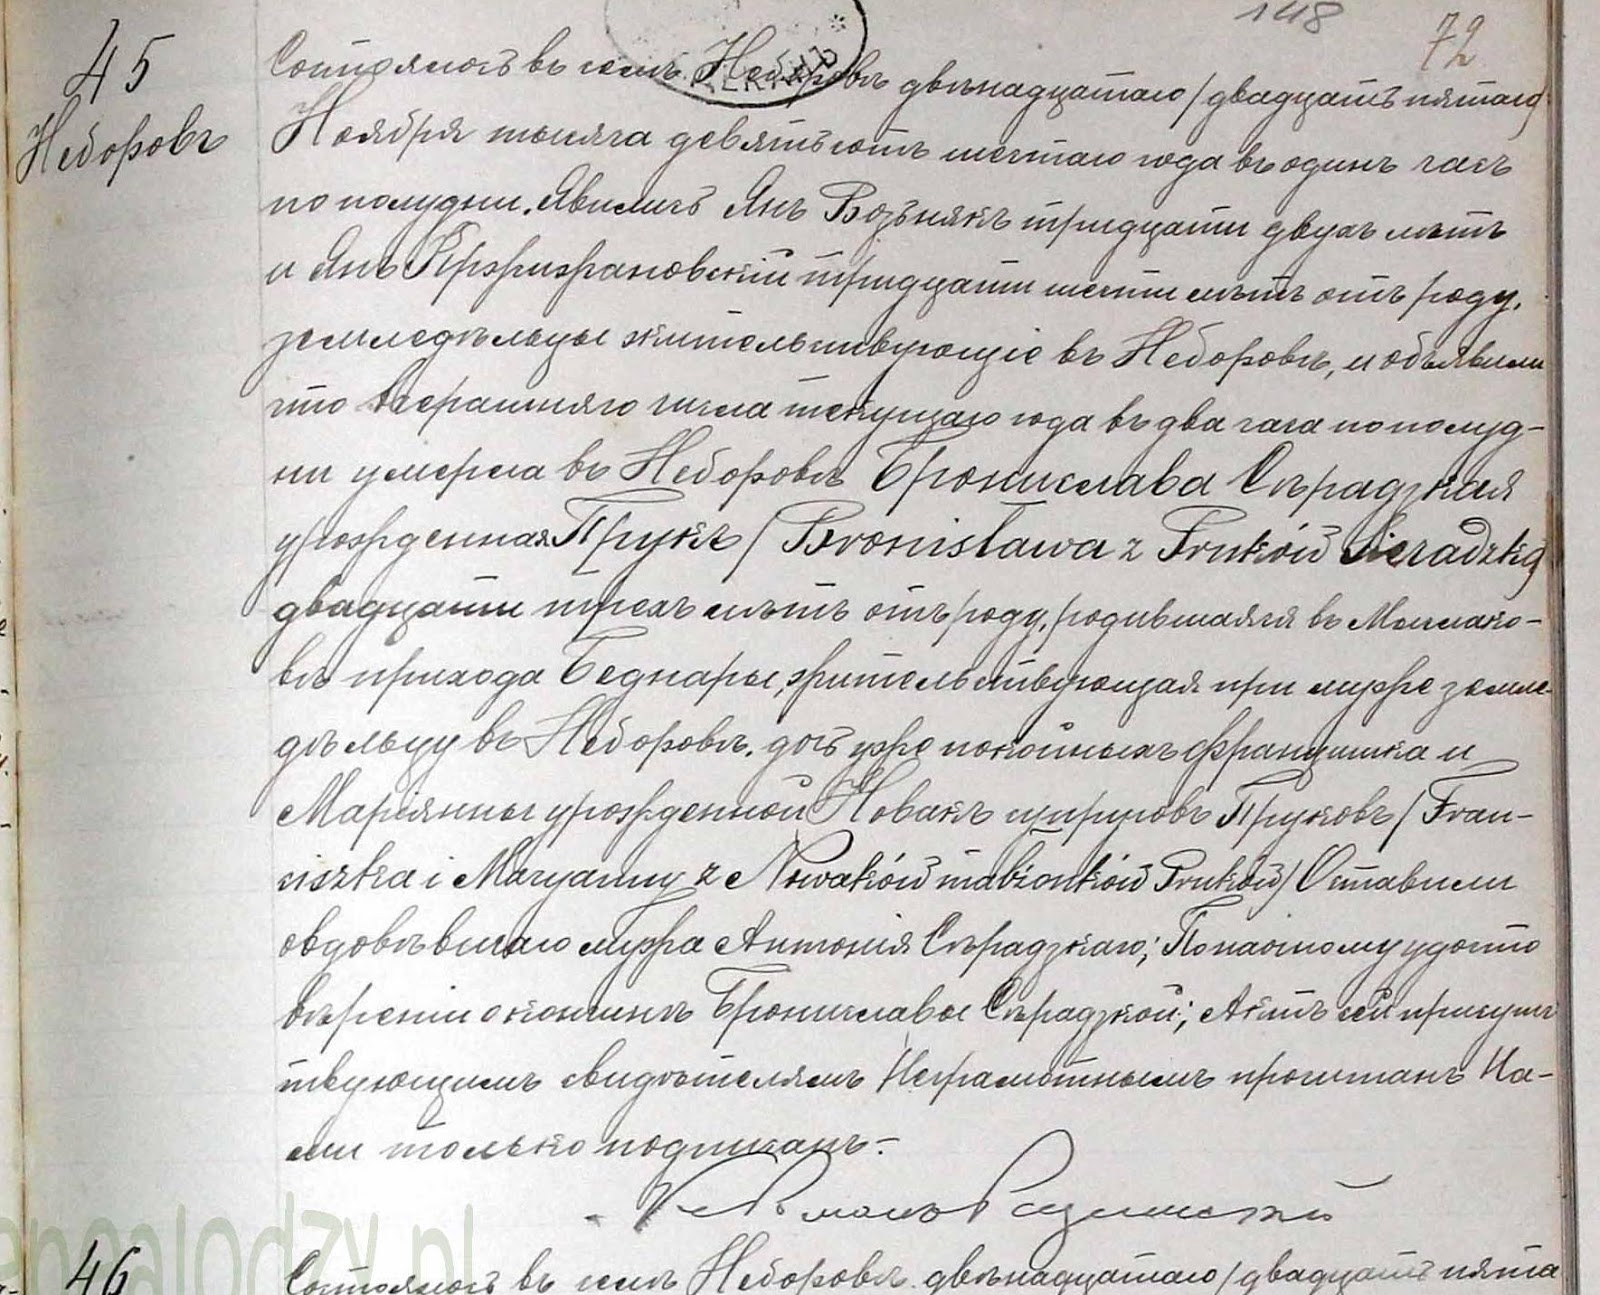 148
72
45
Неборовъ
Состоялось въ селѣ Неборовѣ двѣнадцатаго /двадцать пятаго/
Ноября тысяча девятьсотъ шестаго года въ одинъ часъ
по полудни. Явились Янъ Возьнякъ тридцати двухъ лѣтъ
и Янъ тридцати шести лѣтъ отъ роду,
земледѣльцы жительствующіе въ Неборовѣ, и объявили
что вчерашняго числа текущаго года въ два часа по полуд-
ни умерла въ Неборовѣ Брониславa Сѣрадзкая
урожденная Прукъ /Bronisława z Pruków Sieradzka/
двадцати трехъ лѣтъ отъ роду, родившаяся въ Мыслако-
вѣ прихода Беднары, жительствующая при мужѣ земле-
дѣльцу въ Неборовѣ. дочь уже покойныхъ Францишка и
Маріянны урожденной Новакъ супруговъ Пруковъ /Fran-
ciszka i Maryanny z Nowaków małżonków Pruków/ Оставили
овдовѣвшаго мужа Антонія Сѣрадзкаго; По настоящему удосто
вѣреніи о кончинѣ Брониславы Сѣрадзкой; Актъ сей присутс
твующимъ свидѣтелямъ неграмотнымъ прочитанъ На-
ми только подписанъ.-
46
Состоялось въ селѣ Неборовѣ двѣнадцатаго /двадцать пята